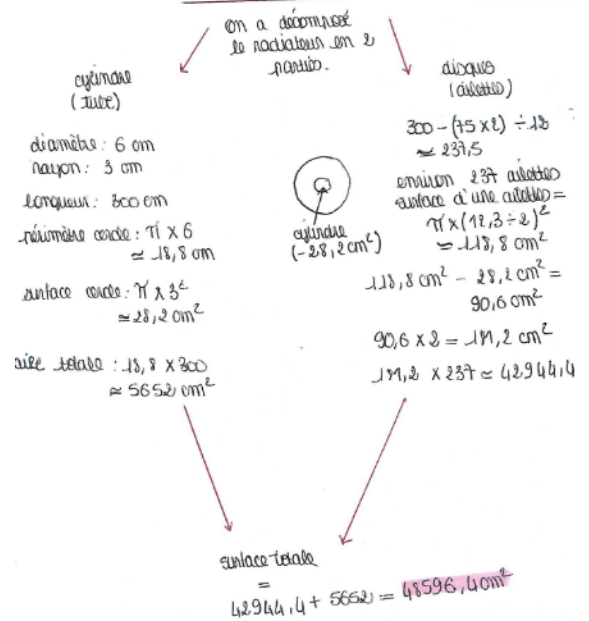 on a décomposé
le radiateur en 2
parties.
cylindre
(tube)
diamètre: 6 cm
rayon: 3 cm
longueur: 300 cm
périmètre cercle: π x 6
≃ 18,8 cm
surface cercle: π x 3²
≃ 28,2 cm²
aire totale: 18,8 x 300
≃ 5652 cm²
cylindre
(-28,2cm²)
disques
(ailettes)
300 - (75 x 2) ÷ 12
≃ 237,5
environ 237 ailettes
surface d'une ailettes =
π x (12,3 ÷ 2)²
≃ 118,8 cm²
118,8 cm² - 28,2 cm² =
90,6 cm²
90,6 x 2 = 181,2 cm²
181,2 x 237 ≃ 42944,4
surface totale
=
42944,4 + 5652 = 48596,4cm²